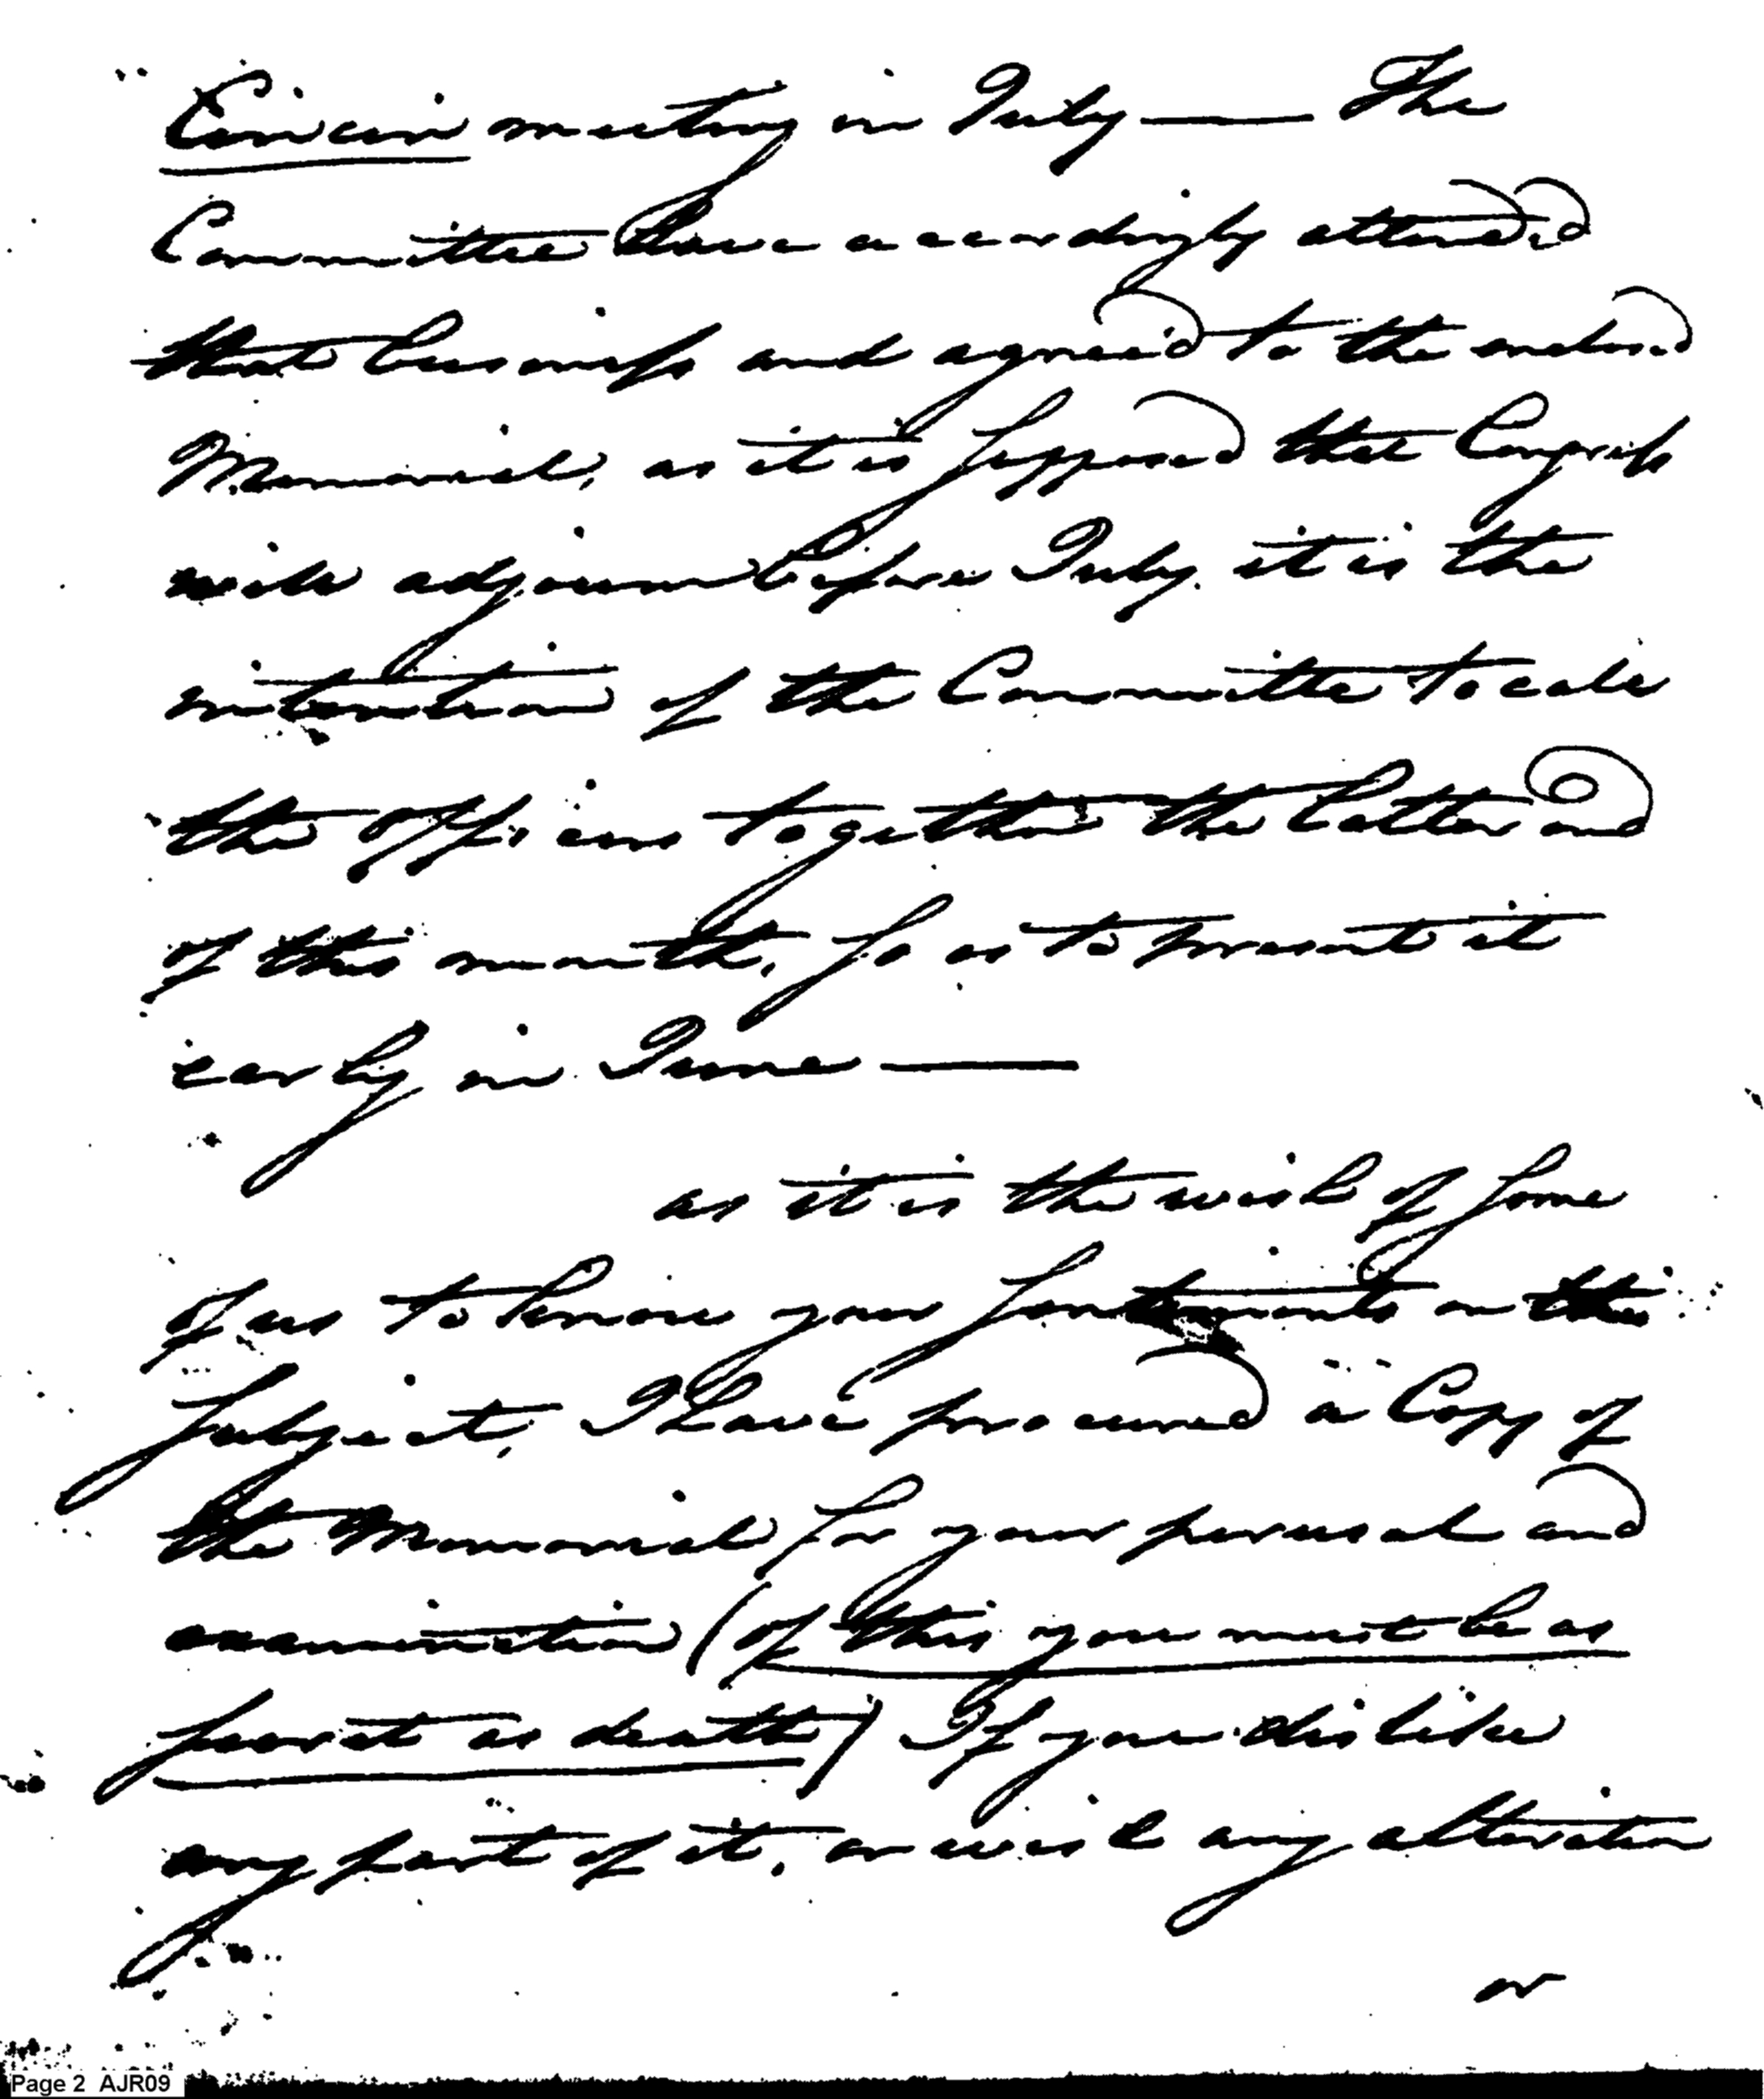 Cincin meeting in July — The
Committee have accordingly attended
that business and agreed to the enclos.d
Memorial, as it is supposed that Congress
will adjourn before July, it is the
intention of the Committee to call
the officers together the latter end
of this month, so as to present it
early in June —
as it is the wish of some
of us to know your sentiments on this
subject, I have procured a Copy of
the Memorial for your perusal and
examination (of this you must be as
secret as death) If you dislike
any part of it, or wish any alteration
or
Page 2 AJR09